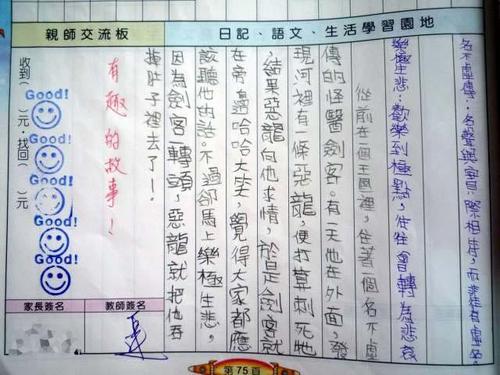 日記、語文、生活學習園地
名不虛傳：名聲與實際相符，而非徒有虛名。
樂極生悲：歡樂到極點，往往會轉為悲哀
從前在一個王國裡，住著一個名不虛
傳的怪醫劍客。有一天他在外面，發
現河裡有一條惡龍，便打算刺死牠
，結果惡龍向他求情，於是劍客就
在旁邊哈哈大笑，覺得大家都應
該聽他的話。不過卻馬上樂極生悲，
因為劍客一轉頭，惡龍就把他吞
掉肚子裡去了！
親師交流板
有趣的故事！
Good!
Good!
Good!
Good!
Good!
收到（ ）元，找回（ ）元
教師簽名
家長簽名
第75頁